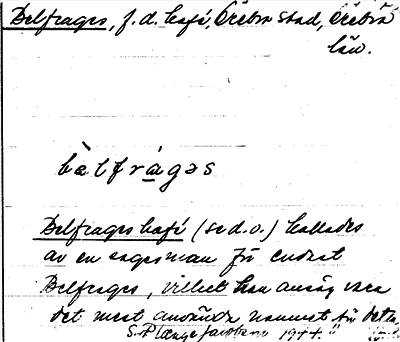 Belfrages, f. d. kafé, Örebro stad, Örebro
län.
bὲlfrágəs
Belfrages kafé (se d. o.) kallades
av en sagesman för endast
Belfrages, vilket han ansåg vara
det mest använda namnet på det
S. 1944."